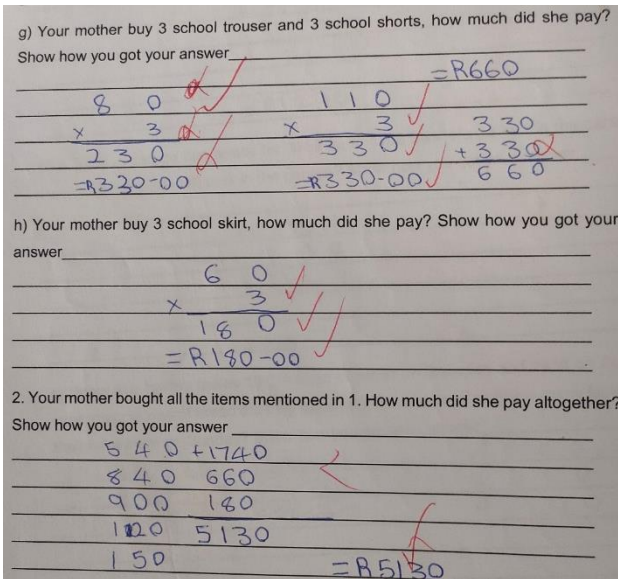 g) Your mother buy 3 school trouser and 3 school shorts, how much did she pay?
Show how you got your answer
=R660
8 0
x 3
2 3 0
=R320-00
1 1 0
x 3
3 3 0
=R330-00
3 30
+ 3 30
6 6 0
h) Your mother buy 3 school skirt, how much did she pay? Show how you got your
answer
6 0
x 3
1 8 0
=R180-00
2. Your mother bought all the items mentioned in 1. How much did she pay altogether?
Show how you got your answer
5 4 0 +1740
8 4 0 660
9 0 0 180
1 20 5130
1 50
=R5130